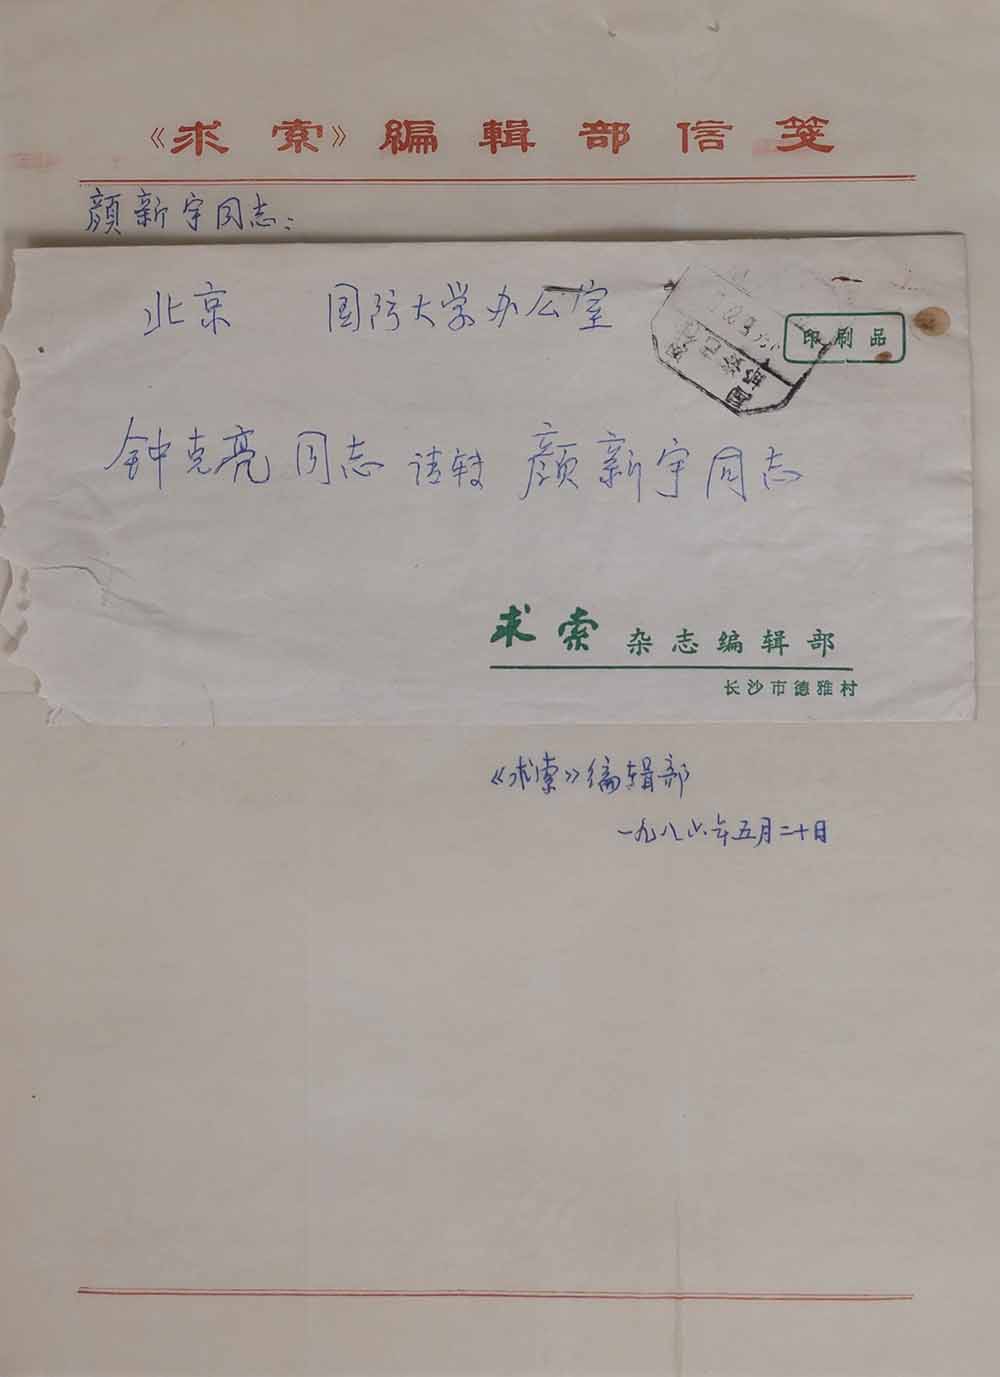 《求索》編輯部信笺
颜新宇同志：
北京 国防大学办公室
印刷品
钟克亮同志 请转 颜新宇同志
求索 杂志编辑部
长沙市德雅村
《求索》编辑部
一九八六年五月二十日